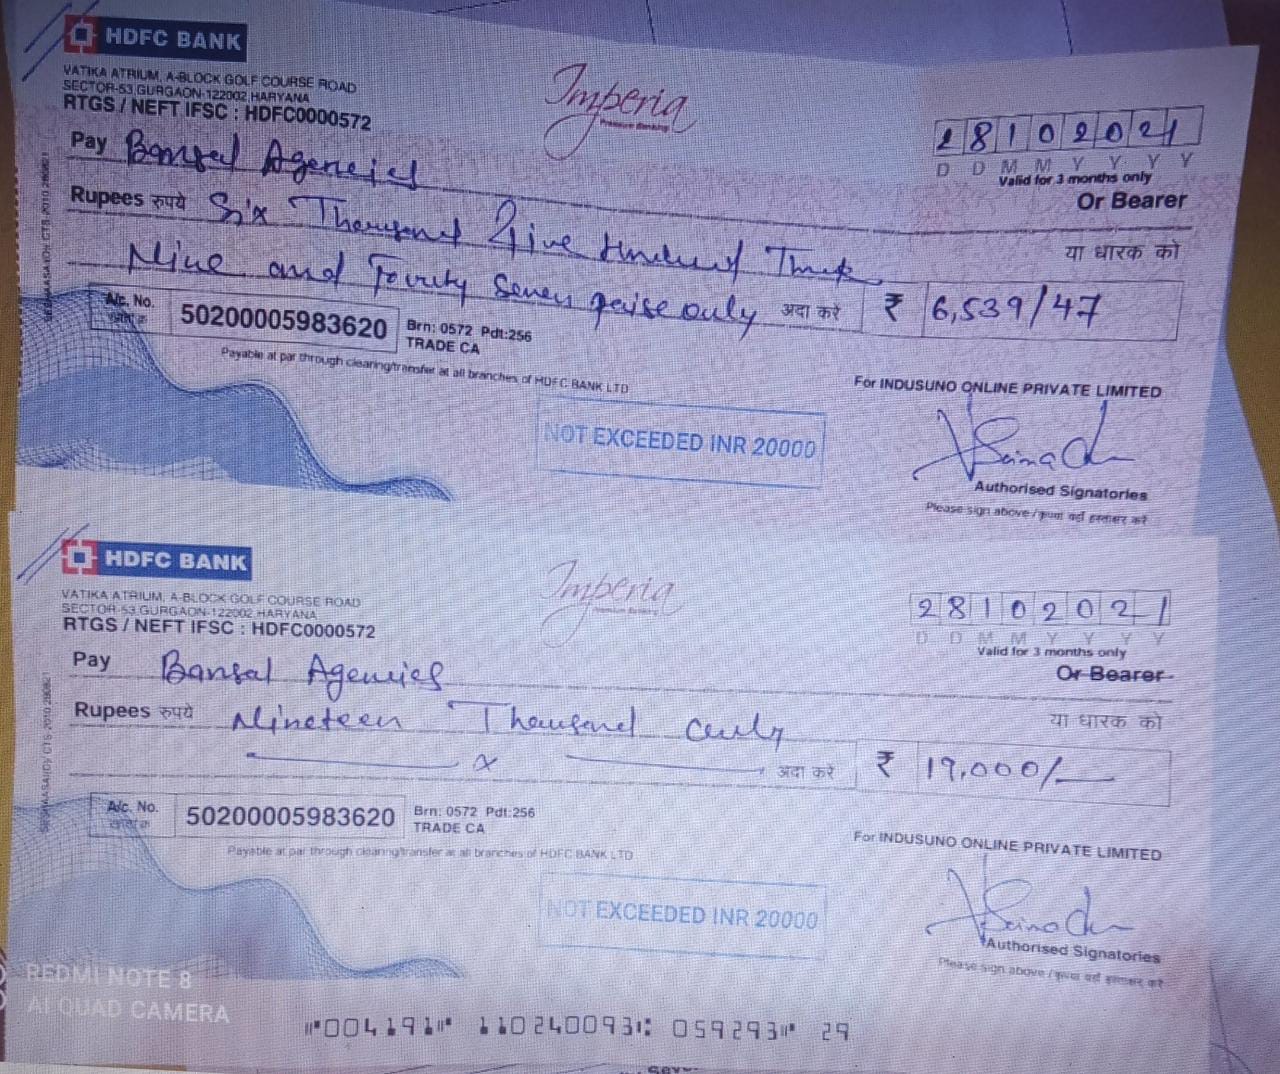 HDFC BANK
VATIKA ATRIUM, A-BLOCK GOLF COURSE ROAD
SECTOR-53,GURGAON-122002,HARYANA
RTGS / NEFT IFSC : HDFC0000572
Imperia
Premium Banking
28102021
D D M M Y Y Y Y
Valid for 3 months only
Pay Bansal Agencies
Or Bearer
Rupees रुपये Six Thousand Five Hundred
या धारक को
Nine and Fourty Seven paise only अदा करे ₹ 6,539/47
A/c. No.
50200005983620
Brn: 0572 Pdt:256
TRADE CA
Payable at par through clearing/transfer at all branches of HDFC BANK LTD
For INDUSUNO ONLINE PRIVATE LIMITED
NOT EXCEEDED INR 20000
Authorised Signatories
Please sign above /
HDFC BANK
VATIKA ATRIUM, A-BLOCK GOLF COURSE ROAD
SECTOR-53,GURGAON-122002,HARYANA
RTGS / NEFT IFSC : HDFC0000572
Imperia
Premium Banking
28102021
D D M M Y Y Y Y
Valid for 3 months only
Pay Bansal Agencies
Or Bearer
Rupees रुपये Nineteen Thousand only
या धारक को
x अदा करे ₹ 19,000/-
A/c. No.
50200005983620
Brn: 0572 Pdt:256
TRADE CA
Payable at par through clearing/transfer at all branches of HDFC BANK LTD
For INDUSUNO ONLINE PRIVATE LIMITED
NOT EXCEEDED INR 20000
Authorised Signatories
Please sign above /
REDMI NOTE 8
AI QUAD CAMERA
⑈004191⑈ 110240093⑆ 059293⑈ 29